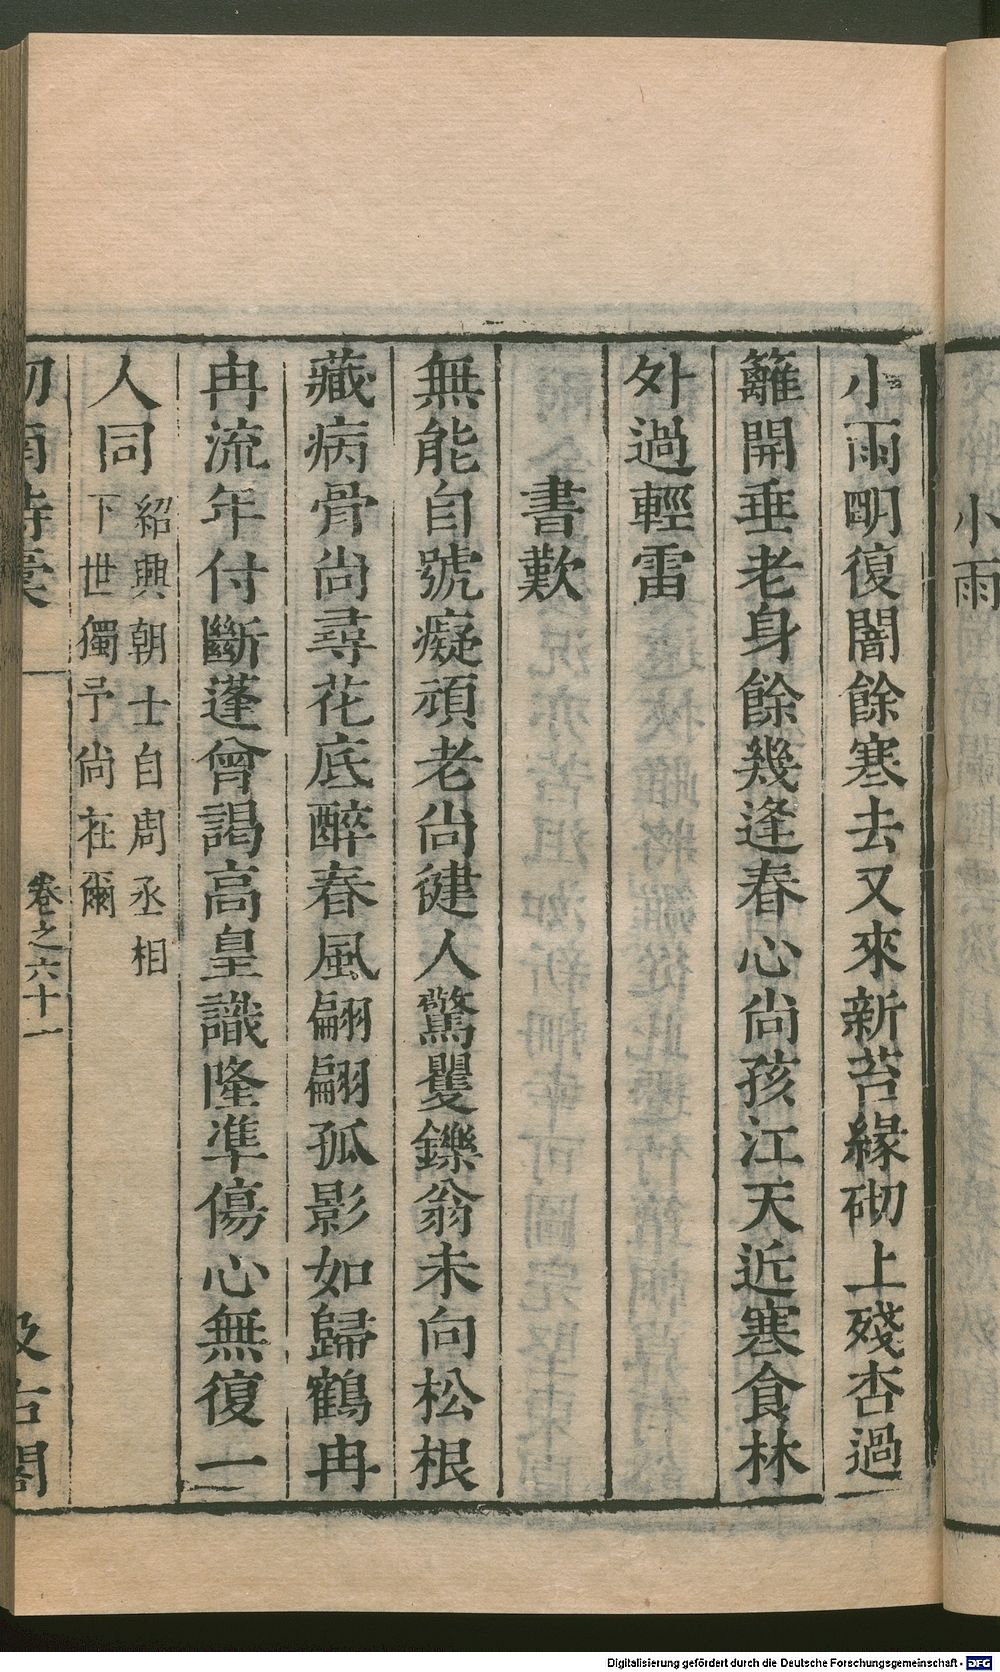 小雨
小雨明復闇餘寒去又來新苔緣砌上殘杏過
籬開垂老身餘幾逢春心尚孩江天近寒食林
外過輕雷
書歎
無能自號癡頑老尚健人驚矍鑠翁未向松根
藏病骨尚尋花底醉春風翩翩孤影如歸鶴冉
冉流年付斷蓬曾謁高皇識隆準傷心無復一
人同
紹興朝士自周丞相
下世獨予尚在爾
卷之六十一
Digitalisierung gefördert durch die Deutsche Forschungsgemeinschaft - DFG